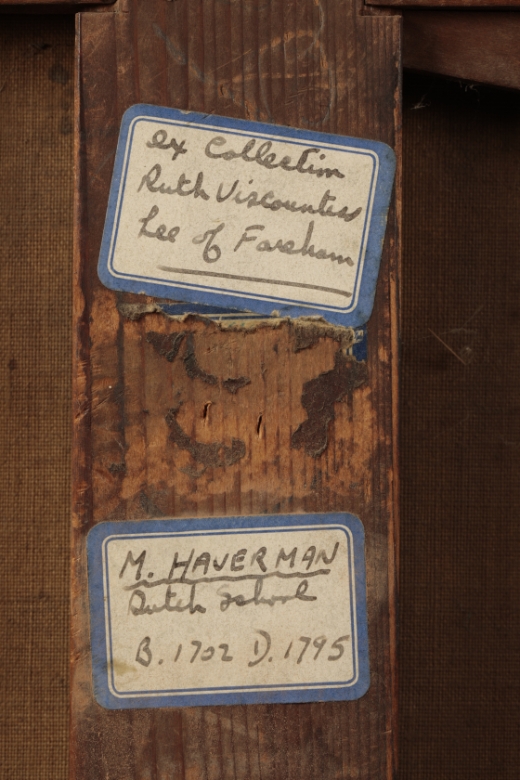 ex Collection
Ruth Viscountess
Lee of Fareham
M. HAVERMAN
Dutch School
B. 1702 D. 1795